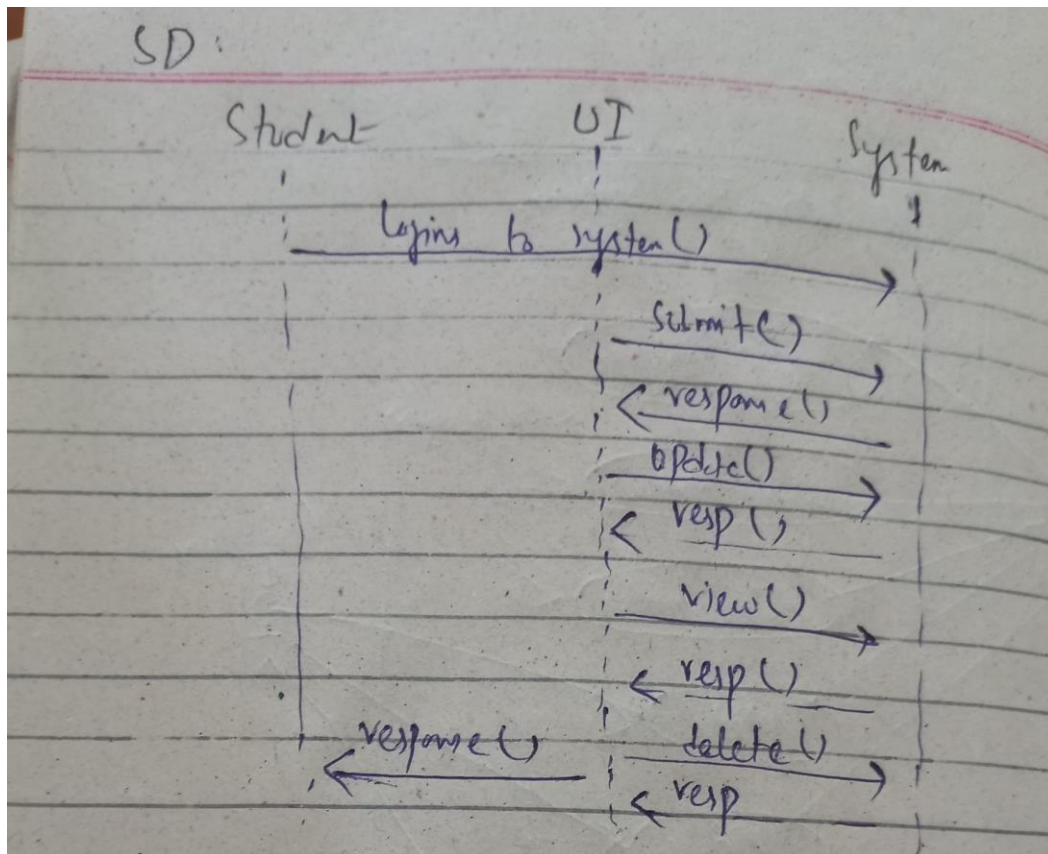 SD:
Student UI System
Logins to system()
submit()
response()
update()
resp()
view()
resp()
response() delete()
resp